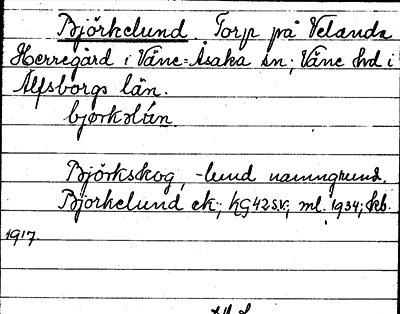 Björkelund. Torp på Velanda
Herregård i Väne-Åsaka sn; Väne hd i
Älfsborgs län.
Björkskog, -lund namngrund.
Björkelund ek; KG 42 S.V.; ml. 1934; kb.
1917.